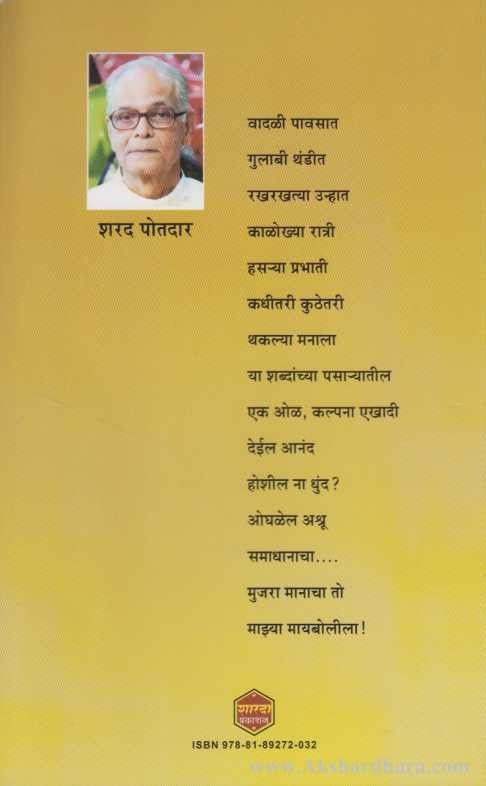 शरद पोतदार
वादळी पावसात
गुलाबी थंडीत
रखरखत्या उन्हात
काळोख्या रात्री
हसऱ्या प्रभाती
कधीतरी कुठेतरी
थकल्या मनाला
या शब्दांच्या पसाऱ्यातील
एक ओळ, कल्पना एखादी
देईल आनंद
होशील ना धुंद?
ओघळेल अश्रू
समाधानाचा....
मुजरा मानाचा तो
माझ्या मायबोलीला!
शारदा
प्रकाशन
ISBN 978-81-89272-032
www.Akshardhara.com